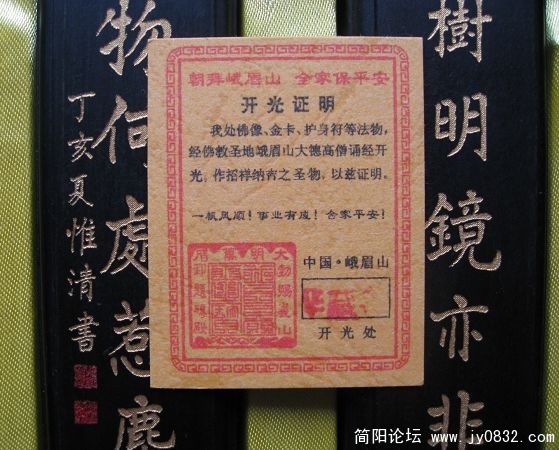 樹明鏡亦非
物何處惹鹿
丁亥夏惟清書
朝拜峨眉山 全家保平安
开光证明
我处佛像、金卡、护身符等法物，
经佛教圣地峨眉山大德高僧诵经开
光。作招祥纳吉之圣物，以兹证明。
一帆风顺！事业有成！合家平安！
中国·峨眉山
开光处
简阳论坛 www.jy0832.com